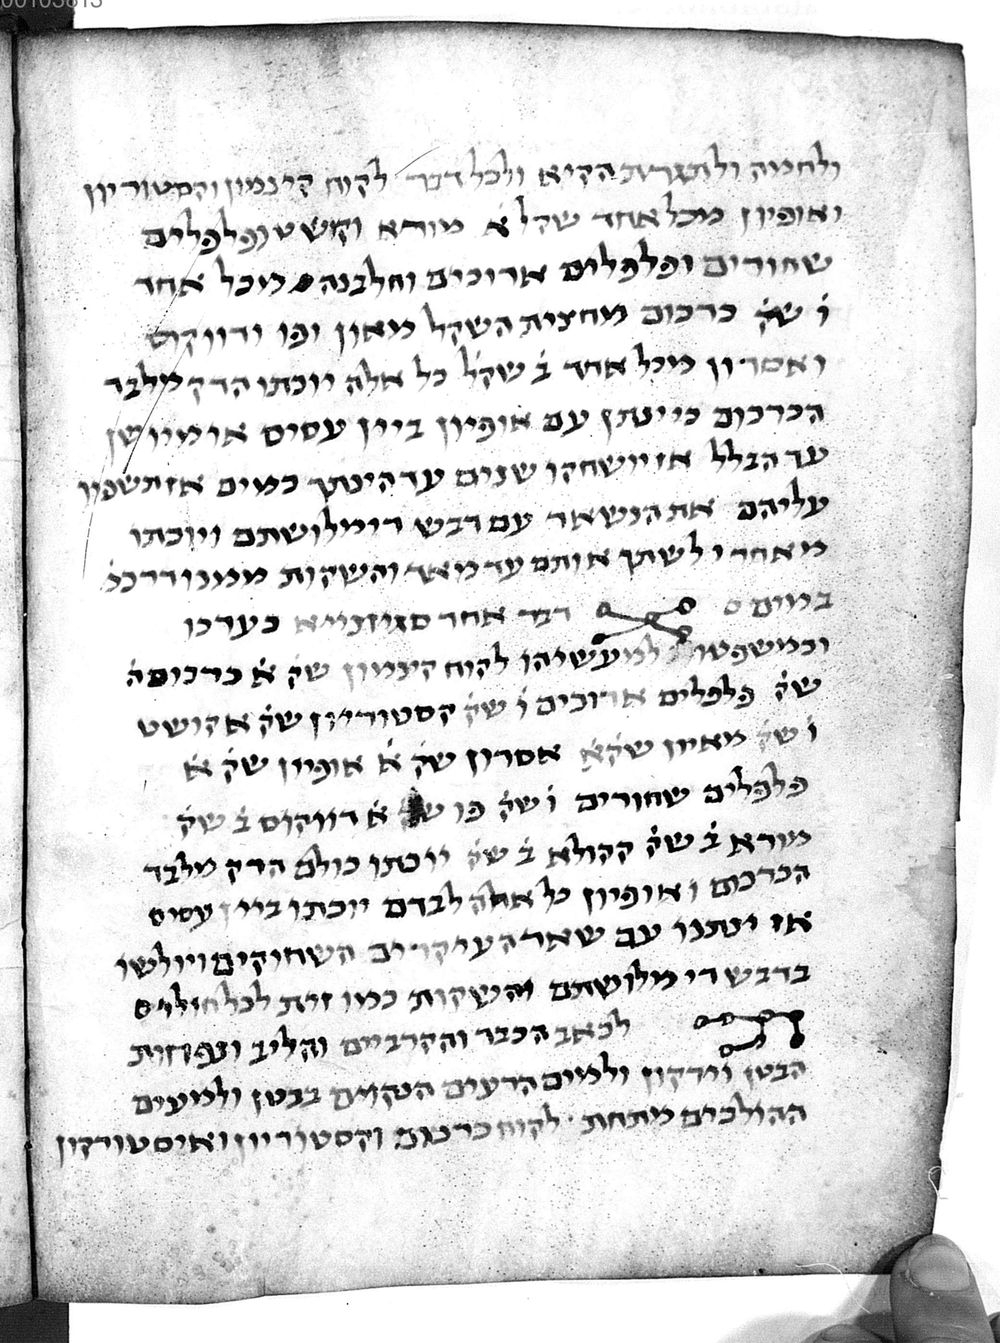 00105813
ולחמה ולתגרת הקיא ולכל דבר לקוח קינמון וקסטוריון
ואופיון מכל אחד שקל א מורא וקשט ופלפלים
שחורים ופלפלים ארוכים וחלבנה מכל אחד
ו שק כרכום מחצית השקל מאון ופו ודווקוס
ואסרון מכל אחד ב שקל כל אלה יוכתו הדק מלבד
הכרכום כי ינתן עם אופיון ביין עסיס או מיושן
עד הבלל אז יושחקו שנים עד הינתך כמים אז תשפך
עליהם את הנשאר עם דבש די מלושתם ויוכתו
מאחד ולשתך אותם עד מאד והשקות ממנו דרככ
במים דבר אחר סגוזניא כערכו
וכמשפטו למעשיהו לקוח קינמון שק א כרכום ה
שק פלפלים ארוכים ו שק קסטוריון שק א קושט
ו שק מאיון שק א אסרון שק א אופיון שק א
פלפלים שחורים ו שק פו שק א דווקוס ב שק
מורא ב שק קקולא ב שק יוכתו כולם הדק מלבד
הכרכום ואופיון כל אלה לבדם יוכתו ביין עסיס
אז ינתנו עם שאר העיקרים השחוקים ויולשו
בדבש די מלושתם והשקות כמו זית לכל חולי
לכאב הכבד והקרביים והליב ונפחות
הבטן וירקון ולמים הרעים הנקוים בבטן ולמעים
ההולכים מתחת לקוח כרכום וקסטוריון ואיסטורקין